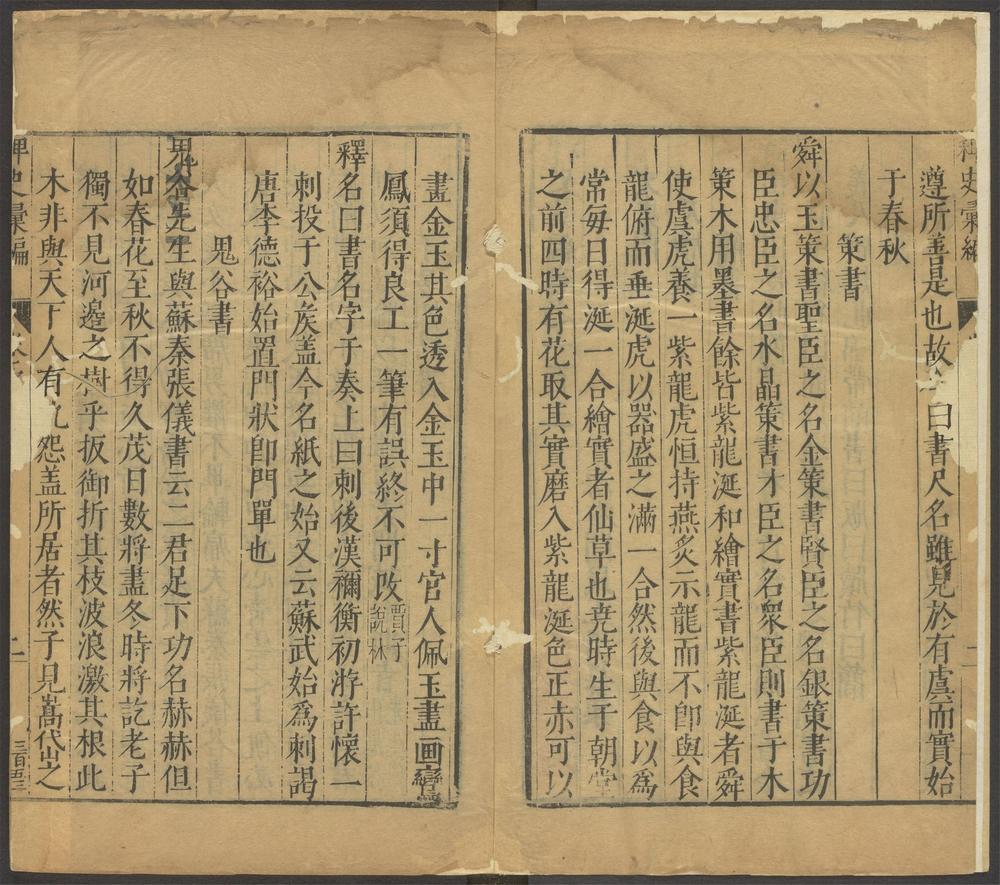 稗史彙編
二
遵所善是也故 曰書尺名雖見於有虞而實始
于春秋
策書
舜以玉策書聖臣之名金策書賢臣之名銀策書功
臣忠臣之名水晶策書才臣之名衆臣則書于木
策木用墨書餘皆紫龍涎和繪實書紫龍涎者舜
使虞虎養一紫龍虎恒持燕炙示龍而不卽與食
龍俯而垂涎虎以器盛之滿一合然後與食以爲
常每日得涎一合繪實者仙草也堯時生于朝堂
之前四時有花取其實磨入紫龍涎色正赤可以
畫金玉其色透入金玉中一寸官人佩玉畫画鸞
鳳須得良工一筆有誤終不可改賈子說林
釋名曰書名字于奏上曰刺後漢禰衡初游許懷一
刺投于公矦盖今名紙之始又云蘇武始爲刺謁
唐李德裕始置門狀卽門單也
鬼谷書
鬼谷先生與蘇秦張儀書云二君足下功名赫赫但
如春花至秋不得久茂日數將盡冬時將訖老子
獨不見河邊之樹乎扳御折其枝波浪激其根此
木非與天下人有仇怨盖所居者然子見嵩岱之
稗史彙編
二